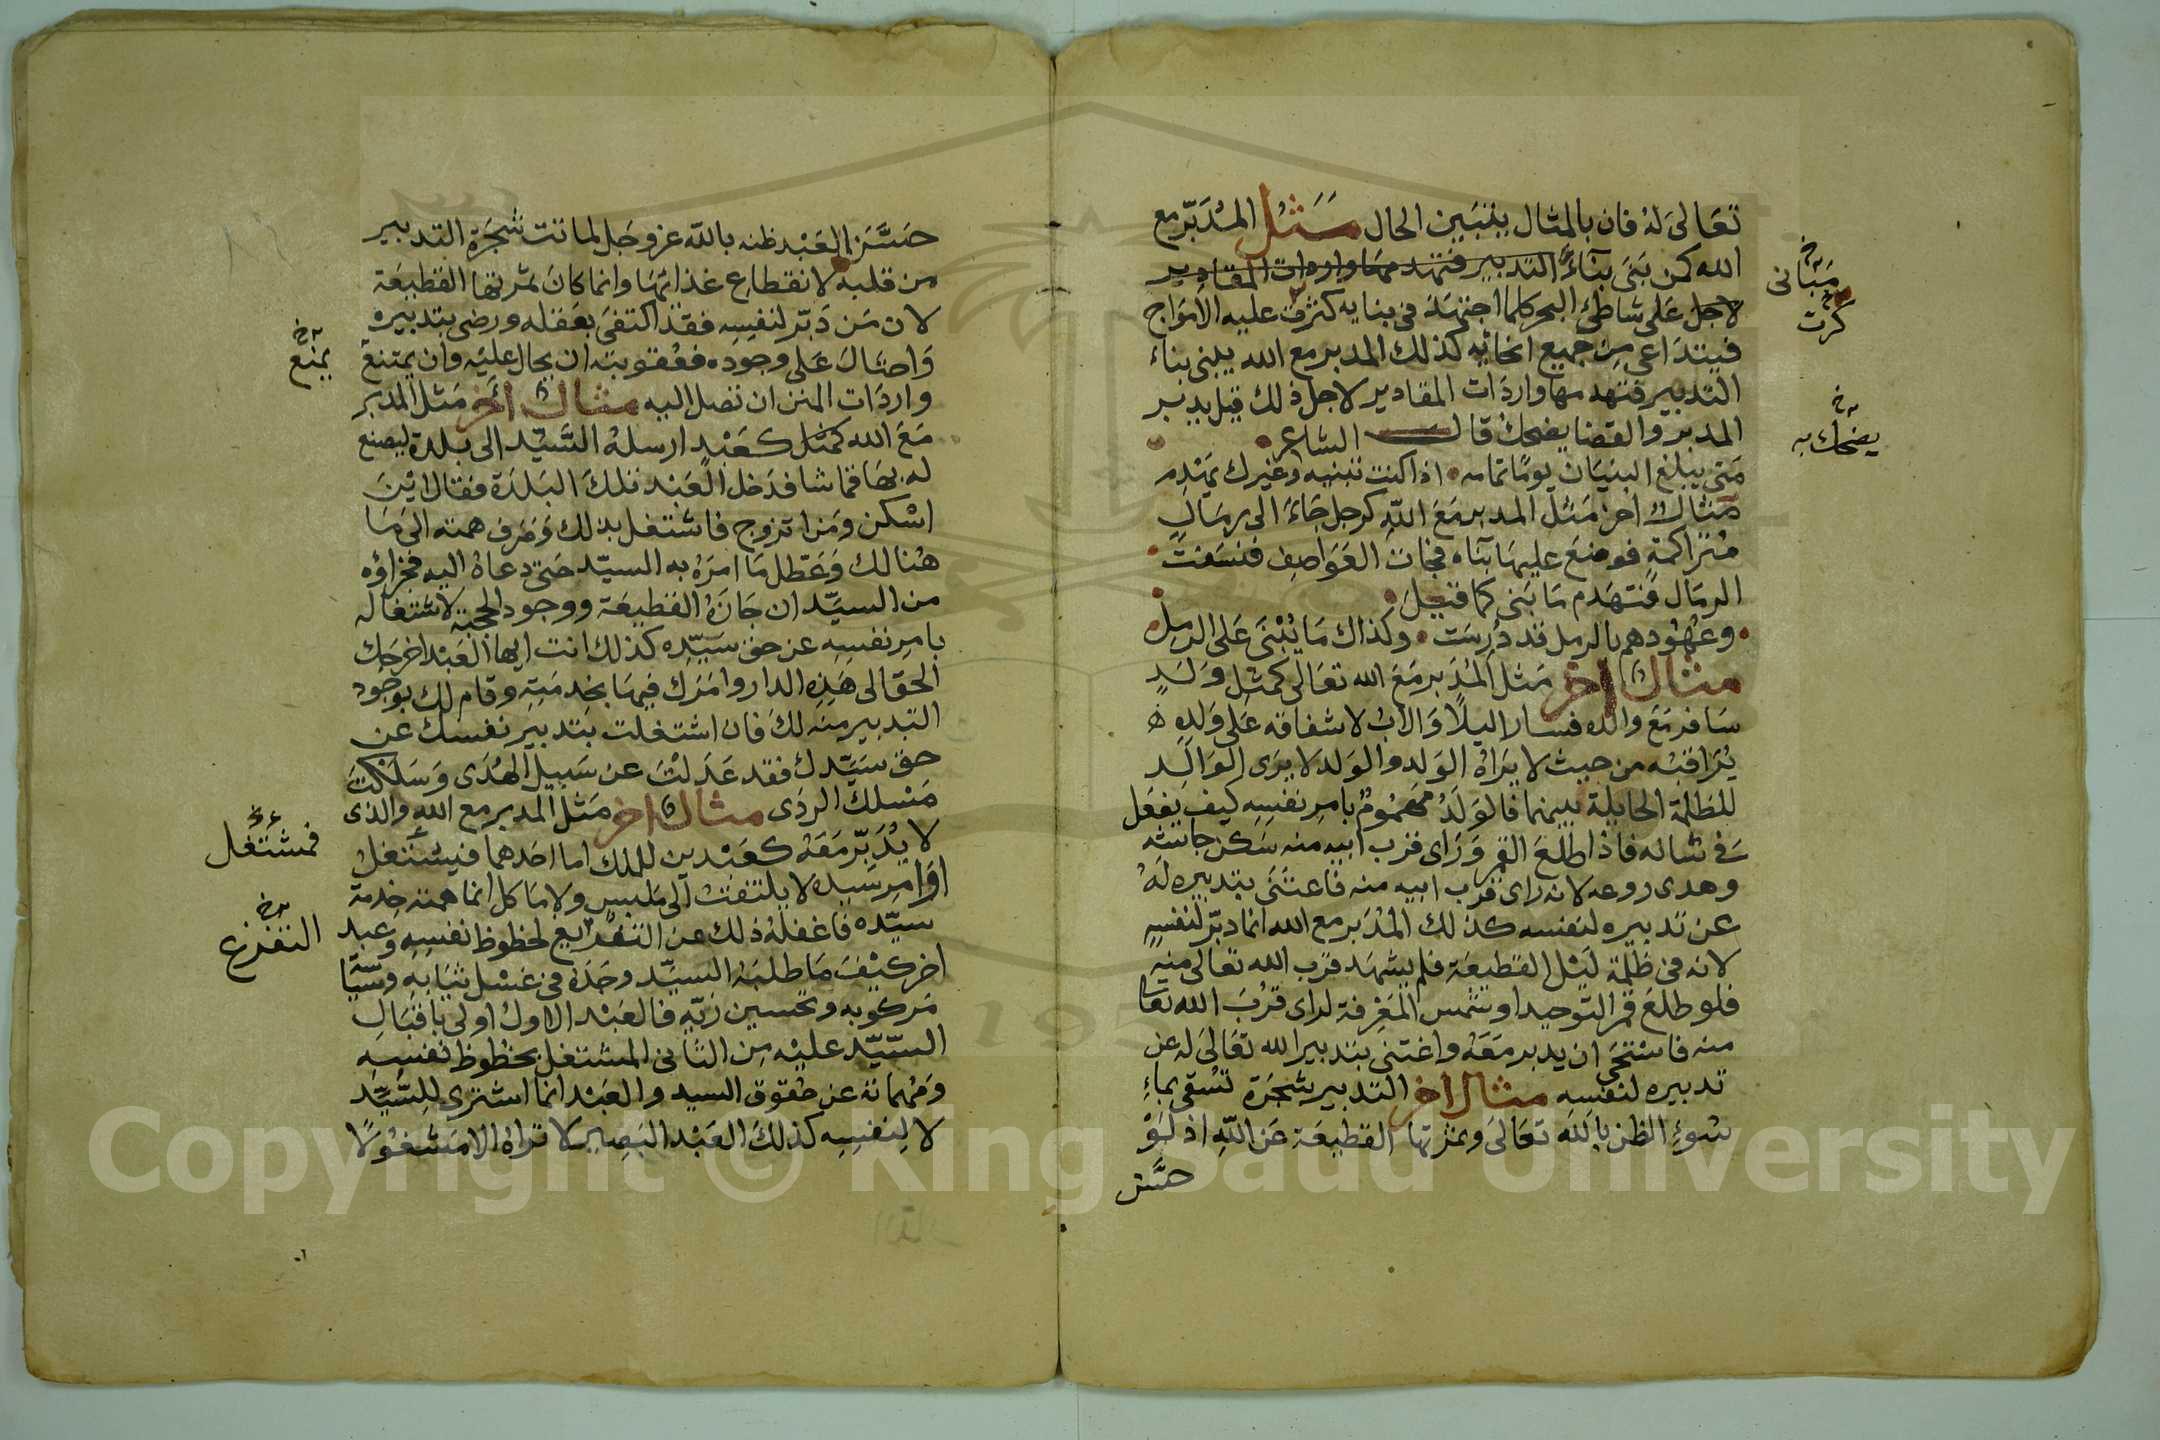 تعَالىَ لهُ فان بالمثال يتبَين الحال مَثل المُدَبّر مع
الله كمن بَنىَ بنَآءً التدبير فتهد مها واردات المقادير
لاجل عَلى شاطئ البحر كلما اجتهَدَ في بنايه كثرت عليه الأموَاج
فيتدَاعى مِن جميع انحَائِه كذلك المدبر مع الله يبنى بناءَ
التدبير فتهد مها واردَات المقادير لاجل ذلك قيل يدبر
المدبر والقضا يضحك قال الشاعر
مَتى يبلغ البنيَان يومًا تمامه اذا كنت تبنيه وغيرك يهْدم
مثال اخر مَثَل المدبر مَعَ اللهِ كرجل جَاءَ الى رمَالٍ
متراكمةٍ فوضعَ عليهَا بنَآه فجات العَوَاصِف فنسَفتْ
الرمَال فتهَدم مَا بَنى كما قيلَ
وعُهُودهم بالرمل قد دُرسَت وكذاك مَا يُبْنىَ عَلى الرملِ
مثال اخر مَثل المُدَبر مَعَ الله تعَالى كمثلِ وَلَدٍ
سَافر مَعَ والده فسارا ليلًا وَالأبُ لاشفاقه عَلى وَلدِهِ
يُرَاقبُه من حيث لا يرَاهُ الوَلد والوَلد لا يرَى الوَالِد
للظلمة الحايلة بينهما فالوَلدُ مَهمُومٌ بامر نفسِهِ كيف يفعَل
في شانه فاذا طلعَ القمَر وَرَاى قرب ابيه منه سَكن جاشه
وهدى روعه لانه راى قرب ابيه منه فاغتنَى بتدبيره لهُ
عن تدبيره لنفسه كذلك المُدَبر مع الله انما دبّر لنفسِهِ
لانه في ظلمة ليْل القطيعَة فلم يشهَد قربَ الله تعَالى مِنه
فلو طلعَ قمر التوحيد او شمس المَعرفة لراى قربَ الله تعَا
منه فاسْتحَى ان يدبر مَعَهُ واغتنى بتدبير الله تعَالىَ له عن
تدبيره لنفسِه مثال اخر التدبير شجَرَة تسْقى بماءِ
سُوءِ الظن باللهِ تعَالىَ وثمرتها القطيعَة عَن اللهِ اذ لَوْ
حسَّن
مَبَانى خ
كرت خ
يضحك به خ
حسَّنَ العَبْد ظنه بالله عز وجَل لماتت شجَرَة التدبير
من قلبه لانقطاع غذائهَا وانما كانَ ثمرتها القطيعَة
لان مَن دَبّر لنفسِه فقد اكتفىَ بعَقله ورضى بتدبيره
وَاحتالَ عَلى وجُوده فعُقوبته ان يحال عليَه وان يمتنعَ
واردَات المنن ان تصل اليه مثال اخر مَثل المُدَبر
مَعَ الله كمثل كعَبْدٍ ارسلهُ السَّيّد الى بلدة ليصنع
له بهَا قماشا فدَخل العَبْد تلكَ البَلدَة فقال ايْنَ
اسْكن وَمَن اتزوج فاشتغل بذلك وَصَرف همته الىَ مَا
هُنالك وَعَطل مَا امَرَهُ به السيّد حَتى دعَاهُ اليه فجزاؤه
من السيَّد ان جَازَهُ القطيعَة ووجود الحجبَة لاشتغاله
بامرِ نفسِهِ عن حق سَيّدِه كذلك انت ايها العَبْد اخرجَك
الحَق الى هَذِه الدار وامَرَك فيهَا بخدمَتِهِ وقام لك بوجُود
التدبير منه لك فان اشتغلت بتدبير نفسك عَن
حق سَيّدك فقد عَدَلْتَ عن سَبيل الهُدَى وَسَلكتَ
مَسْلك الردَى مثال اخر مَثل المدبر مع الله والذى
لا يُدَبّر مَعَهُ كعَبْدين للملك اما احَدهما فيَشتغلُ
اوَامِر سَيده لا يلتفتُ الى مَلبس ولا مَاكل انما همته خِدمَة
سيّده فاغفلهُ ذلك عن التفرّيع لحظوظ نفسِهِ وعبد
اخر كيْفَ مَا طلبَهُ السيّد وجَدَهُ في غسْل ثيَابه وسيَّا
مَركوبه وتحسين زيّه فالعَبْد الاولُ اولى باقبَالِ
السّيّد عليْه مِن الثانى المشتغل بحظُوظ نفسِهِ
وَمُهمَاته عن حُقوق السيد والعَبْد انما اشترى لِلسَّيَّد
لا لِنفسِهِ كذلكَ العَبْد البَصِير لا ترَاهُ الا مَشغُولًا
يمنع خ
فمشتغل خ
التفزع خ
Copyright © King Saud University